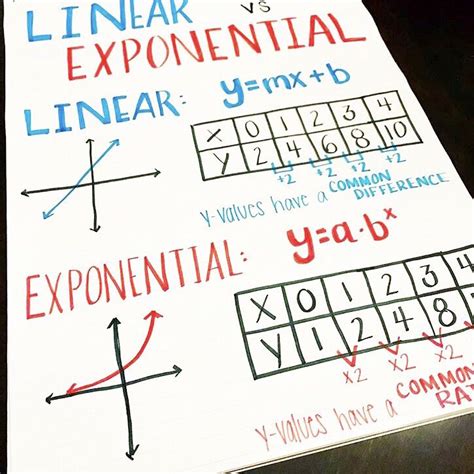 LINEAR VS
EXPONENTIAL
LINEAR: y=mx+b
X 0 1 2 3 4
Y 2 4 6 8 10
+2 +2 +2 +2
Y-VALUES HAVE A COMMON
DIFFERENCE
EXPONENTIAL: y=a·bˣ
X 0 1 2 3 4
Y 1 2 4 8
x2 x2 x2
Y-VALUES HAVE A COMMON